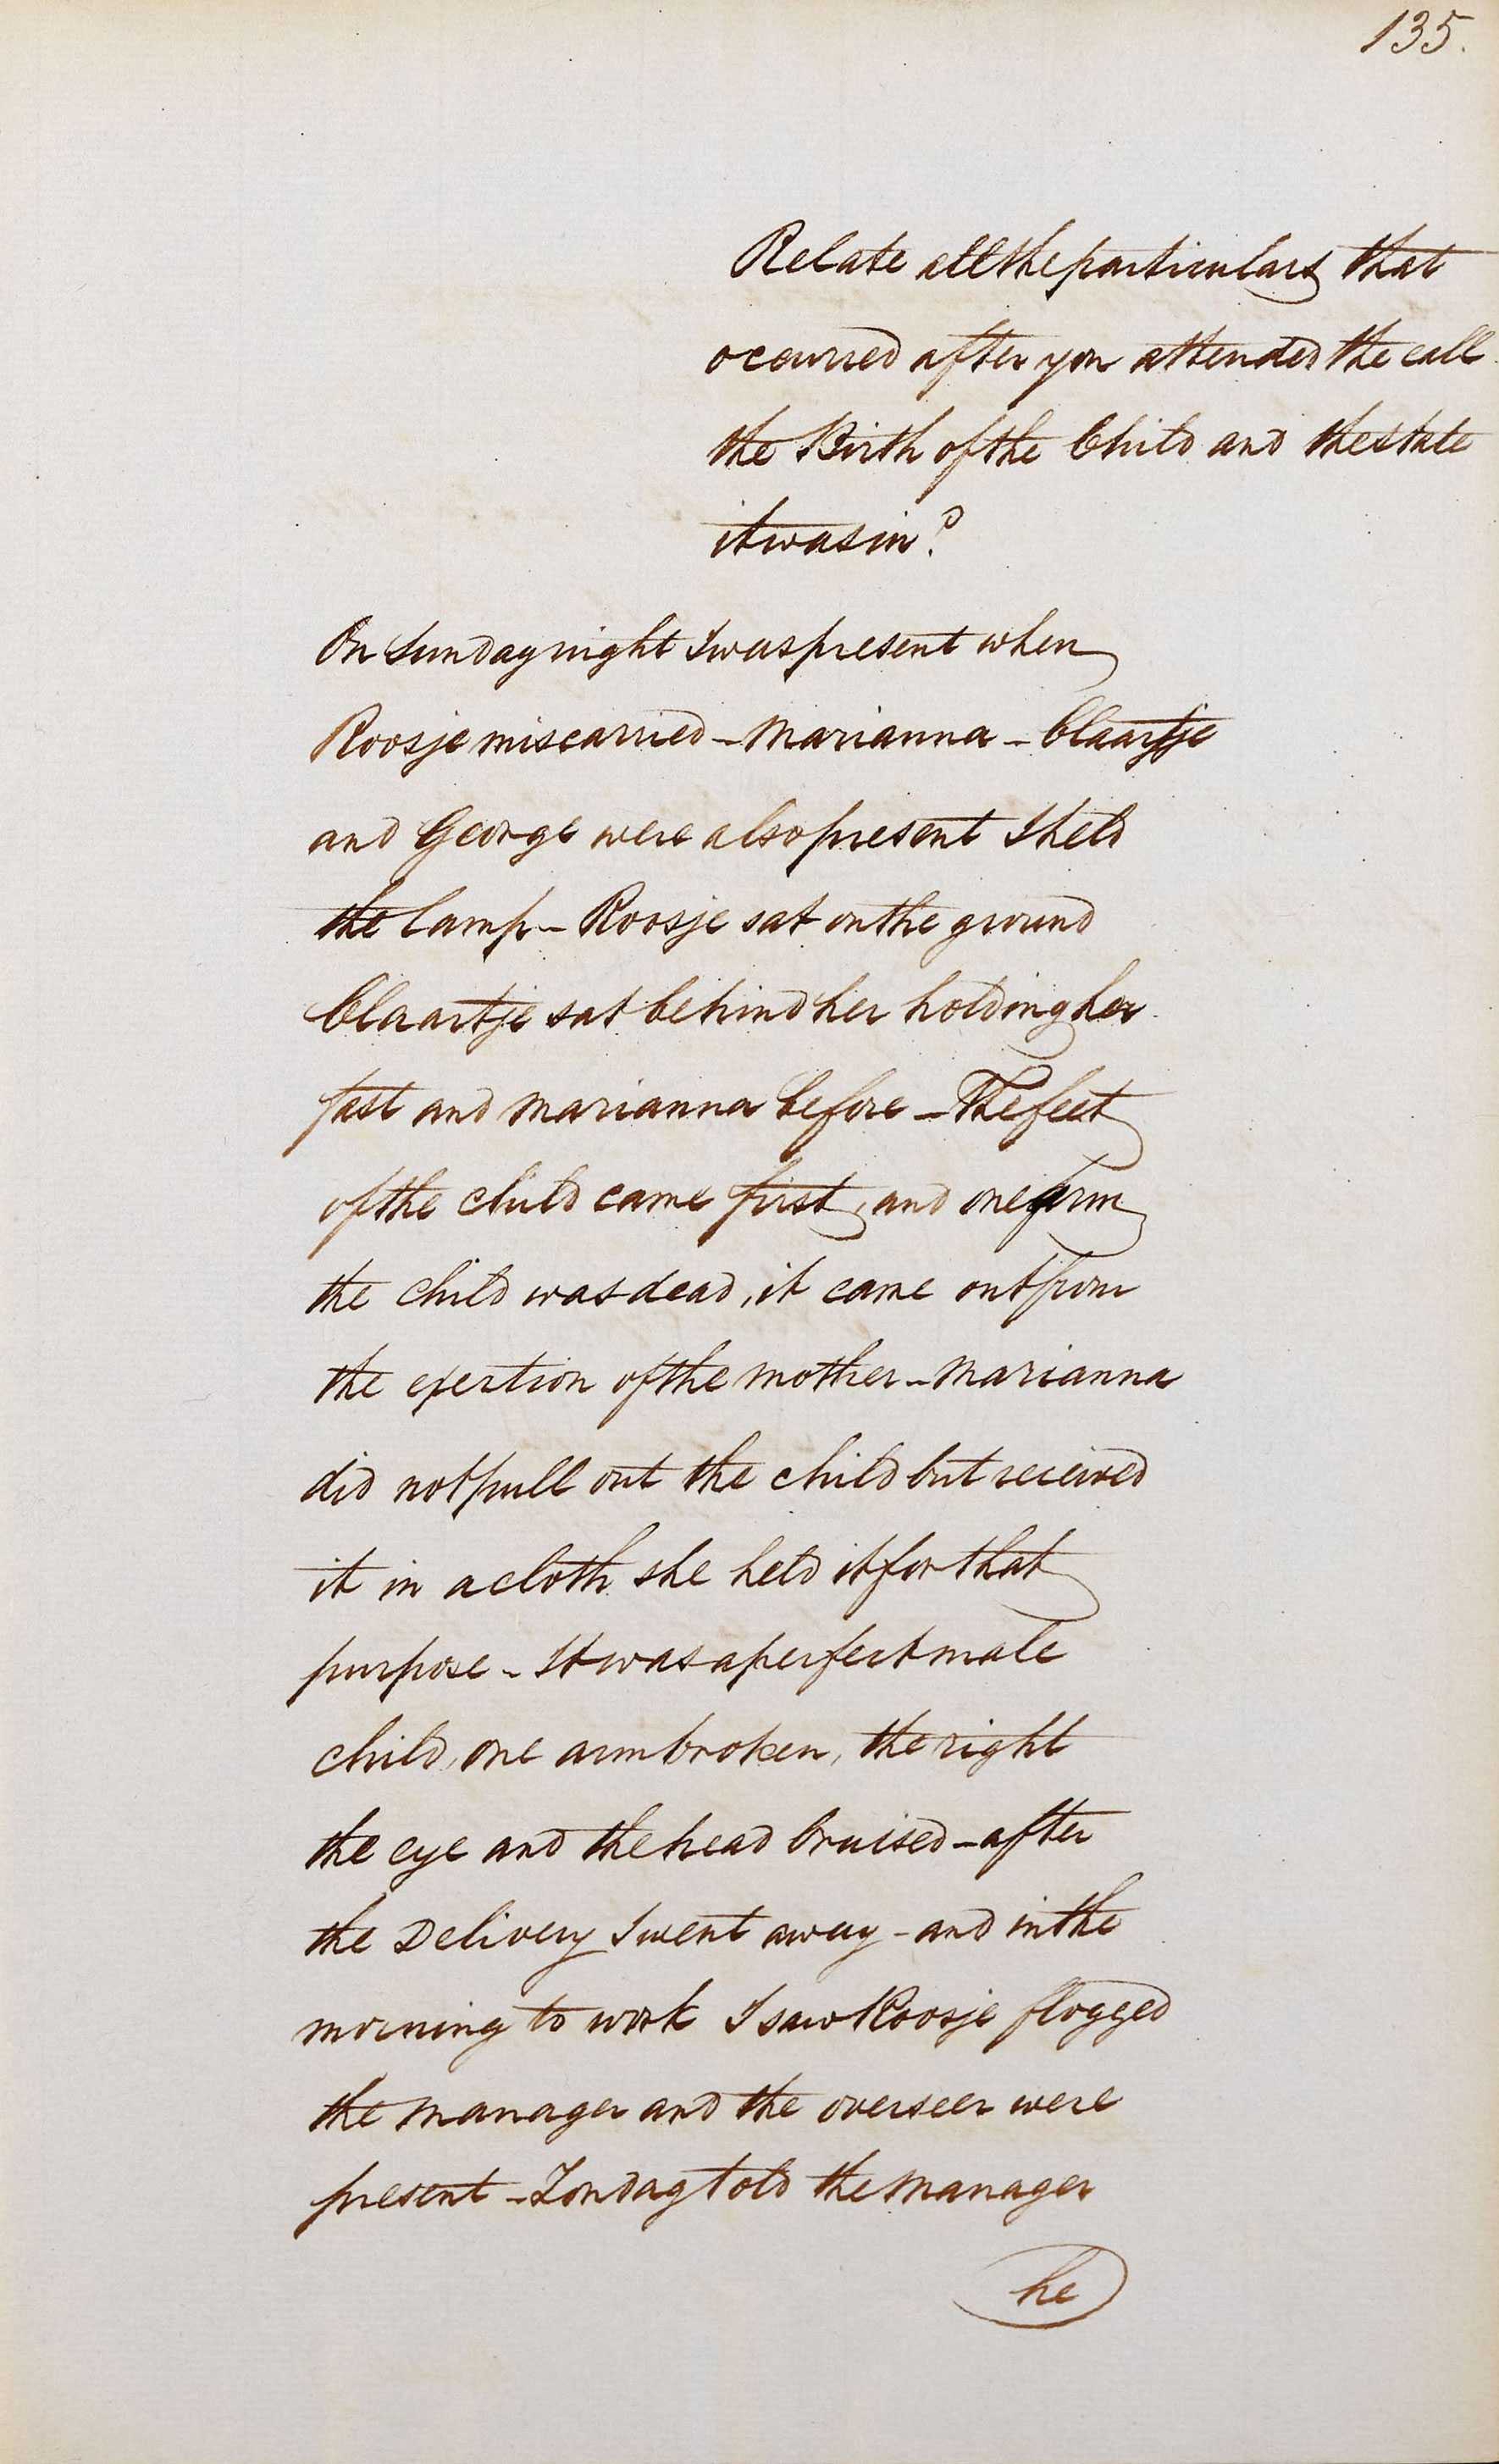 135.
Relate all the particulars that
occurred after you attended the call
the Birth of the Child and the state
it was in?
On Sunday night I was present when
Roosje miscarried – Marianna – Claartje
and George were also present I held
the lamp – Roosje sat on the ground
Claartje sat behind her holding her
fast and Marianna before – The feet
of the child came first, and one arm
the child was dead, it came out from
the exertion of the mother – Marianna
did not pull out the child but received
it in a cloth she held it for that
purpose – It was a perfect male
child, one arm broken, the right
the eye and the head bruised – after
the Delivery I went away – and in the
morning to work I saw Roosje flogged
the manager and the overseer were
present – Zondag told the manager
he